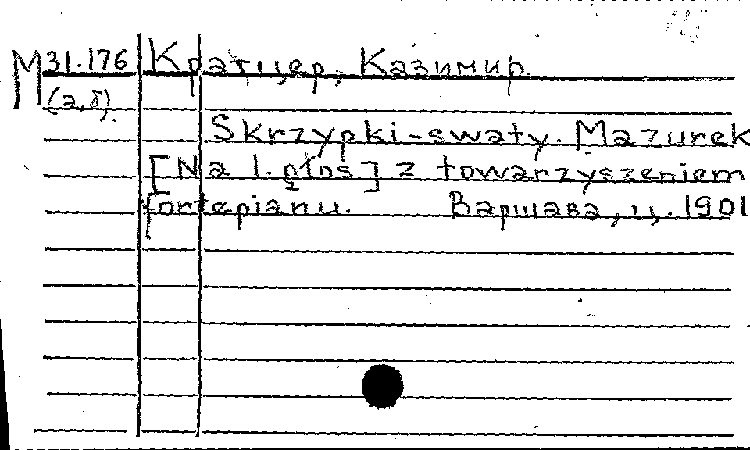 М 31.176 Кратцер, Казимир.
(а,б).
Skrzypki-swaty. Mazurek
[Na 1. głos] z towarzyszeniem
fortepianu. Варшава, ц. 1901